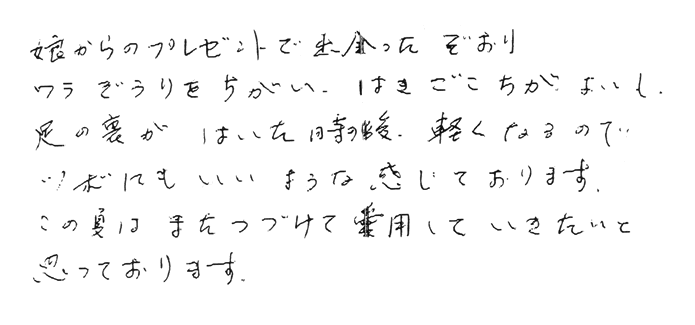 娘からのプレゼントで出会った ぞおり
ワラ ぞうりをちがい、はきごこちが よいし、
足の裏が はいた時後、軽くなるので
ツボにも いいような感じております。
この夏は またつづけて愛用していきたいと
思っております。